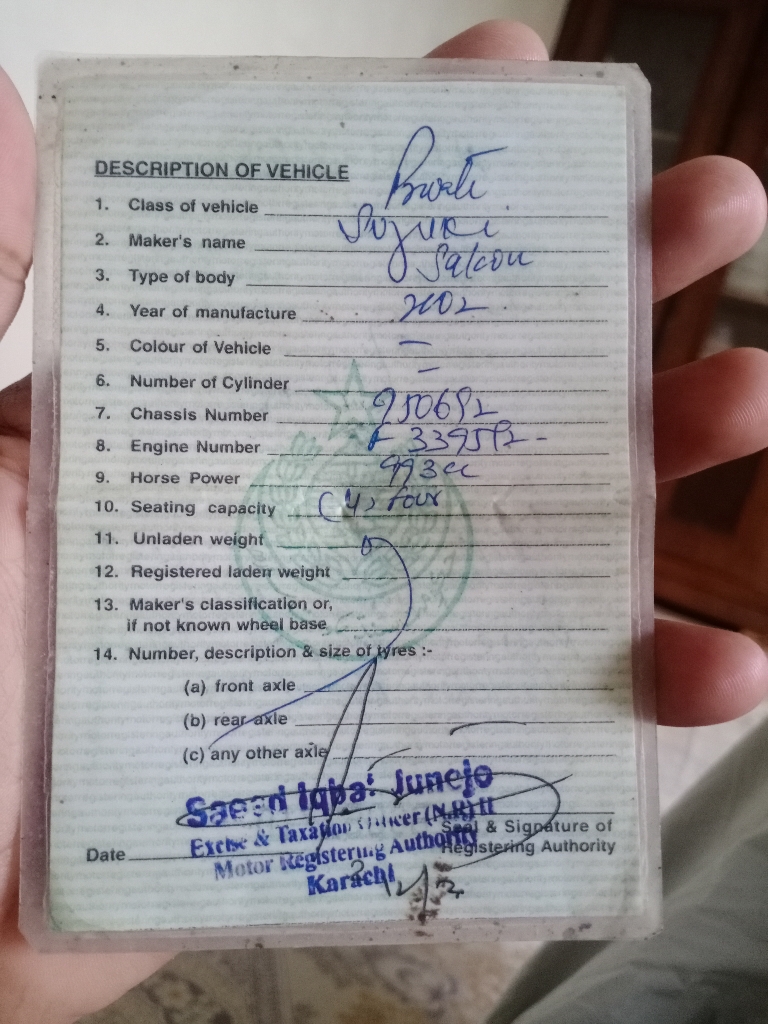 DESCRIPTION OF VEHICLE
1. Class of vehicle
2. Maker's name Suzuki
3. Type of body Saloon
4. Year of manufacture 2002
5. Colour of Vehicle —
6. Number of Cylinder –
7. Chassis Number
8. Engine Number
9. Horse Power 993cc
10. Seating capacity (4) four
11. Unladen weight
12. Registered laden weight
13. Maker's classification or,
if not known wheel base
14. Number, description & size of tyres :-
(a) front axle
(b) rear axle
(c) any other axle
Saeed Iqbal Junejo
Excise & Taxation Officer (N.R) II
Motor Registering Authority
Karachi
Seal & Signature of
Registering Authority
Date